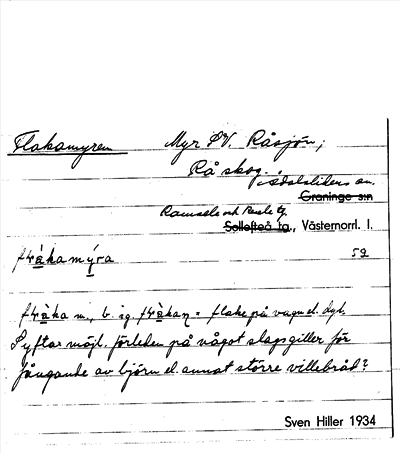 Flakamyren Myr SV. Råsjön;
Rå skog. i Ådalslidens sn.
Graninge s:n
Ramsele och Resele tg.
Sollefteå tg., Västernorrl. l.
flàkamýra 59
flàka m., b. sg. flàkan = flake på vagn el. dyl.
Syftar möjl. förleden på något slags giller för
fångande av björn el. annat större villebråd?
Sven Hiller 1934